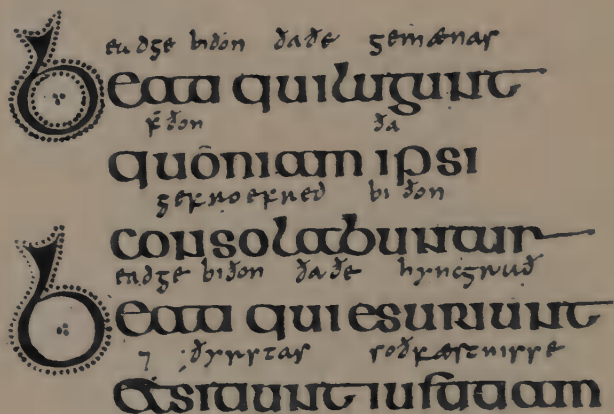 eadge biðon ðaðe gemænas
beati qui lugunt
f̄ðon ða
quoniam ipsi
gefroefred biðon
consolabuntur
eadge biðon ðaðe hyncgrað
beati qui esuriunt
⁊ ðyrstas soðfæstnisse
et sitiunt iustitiam